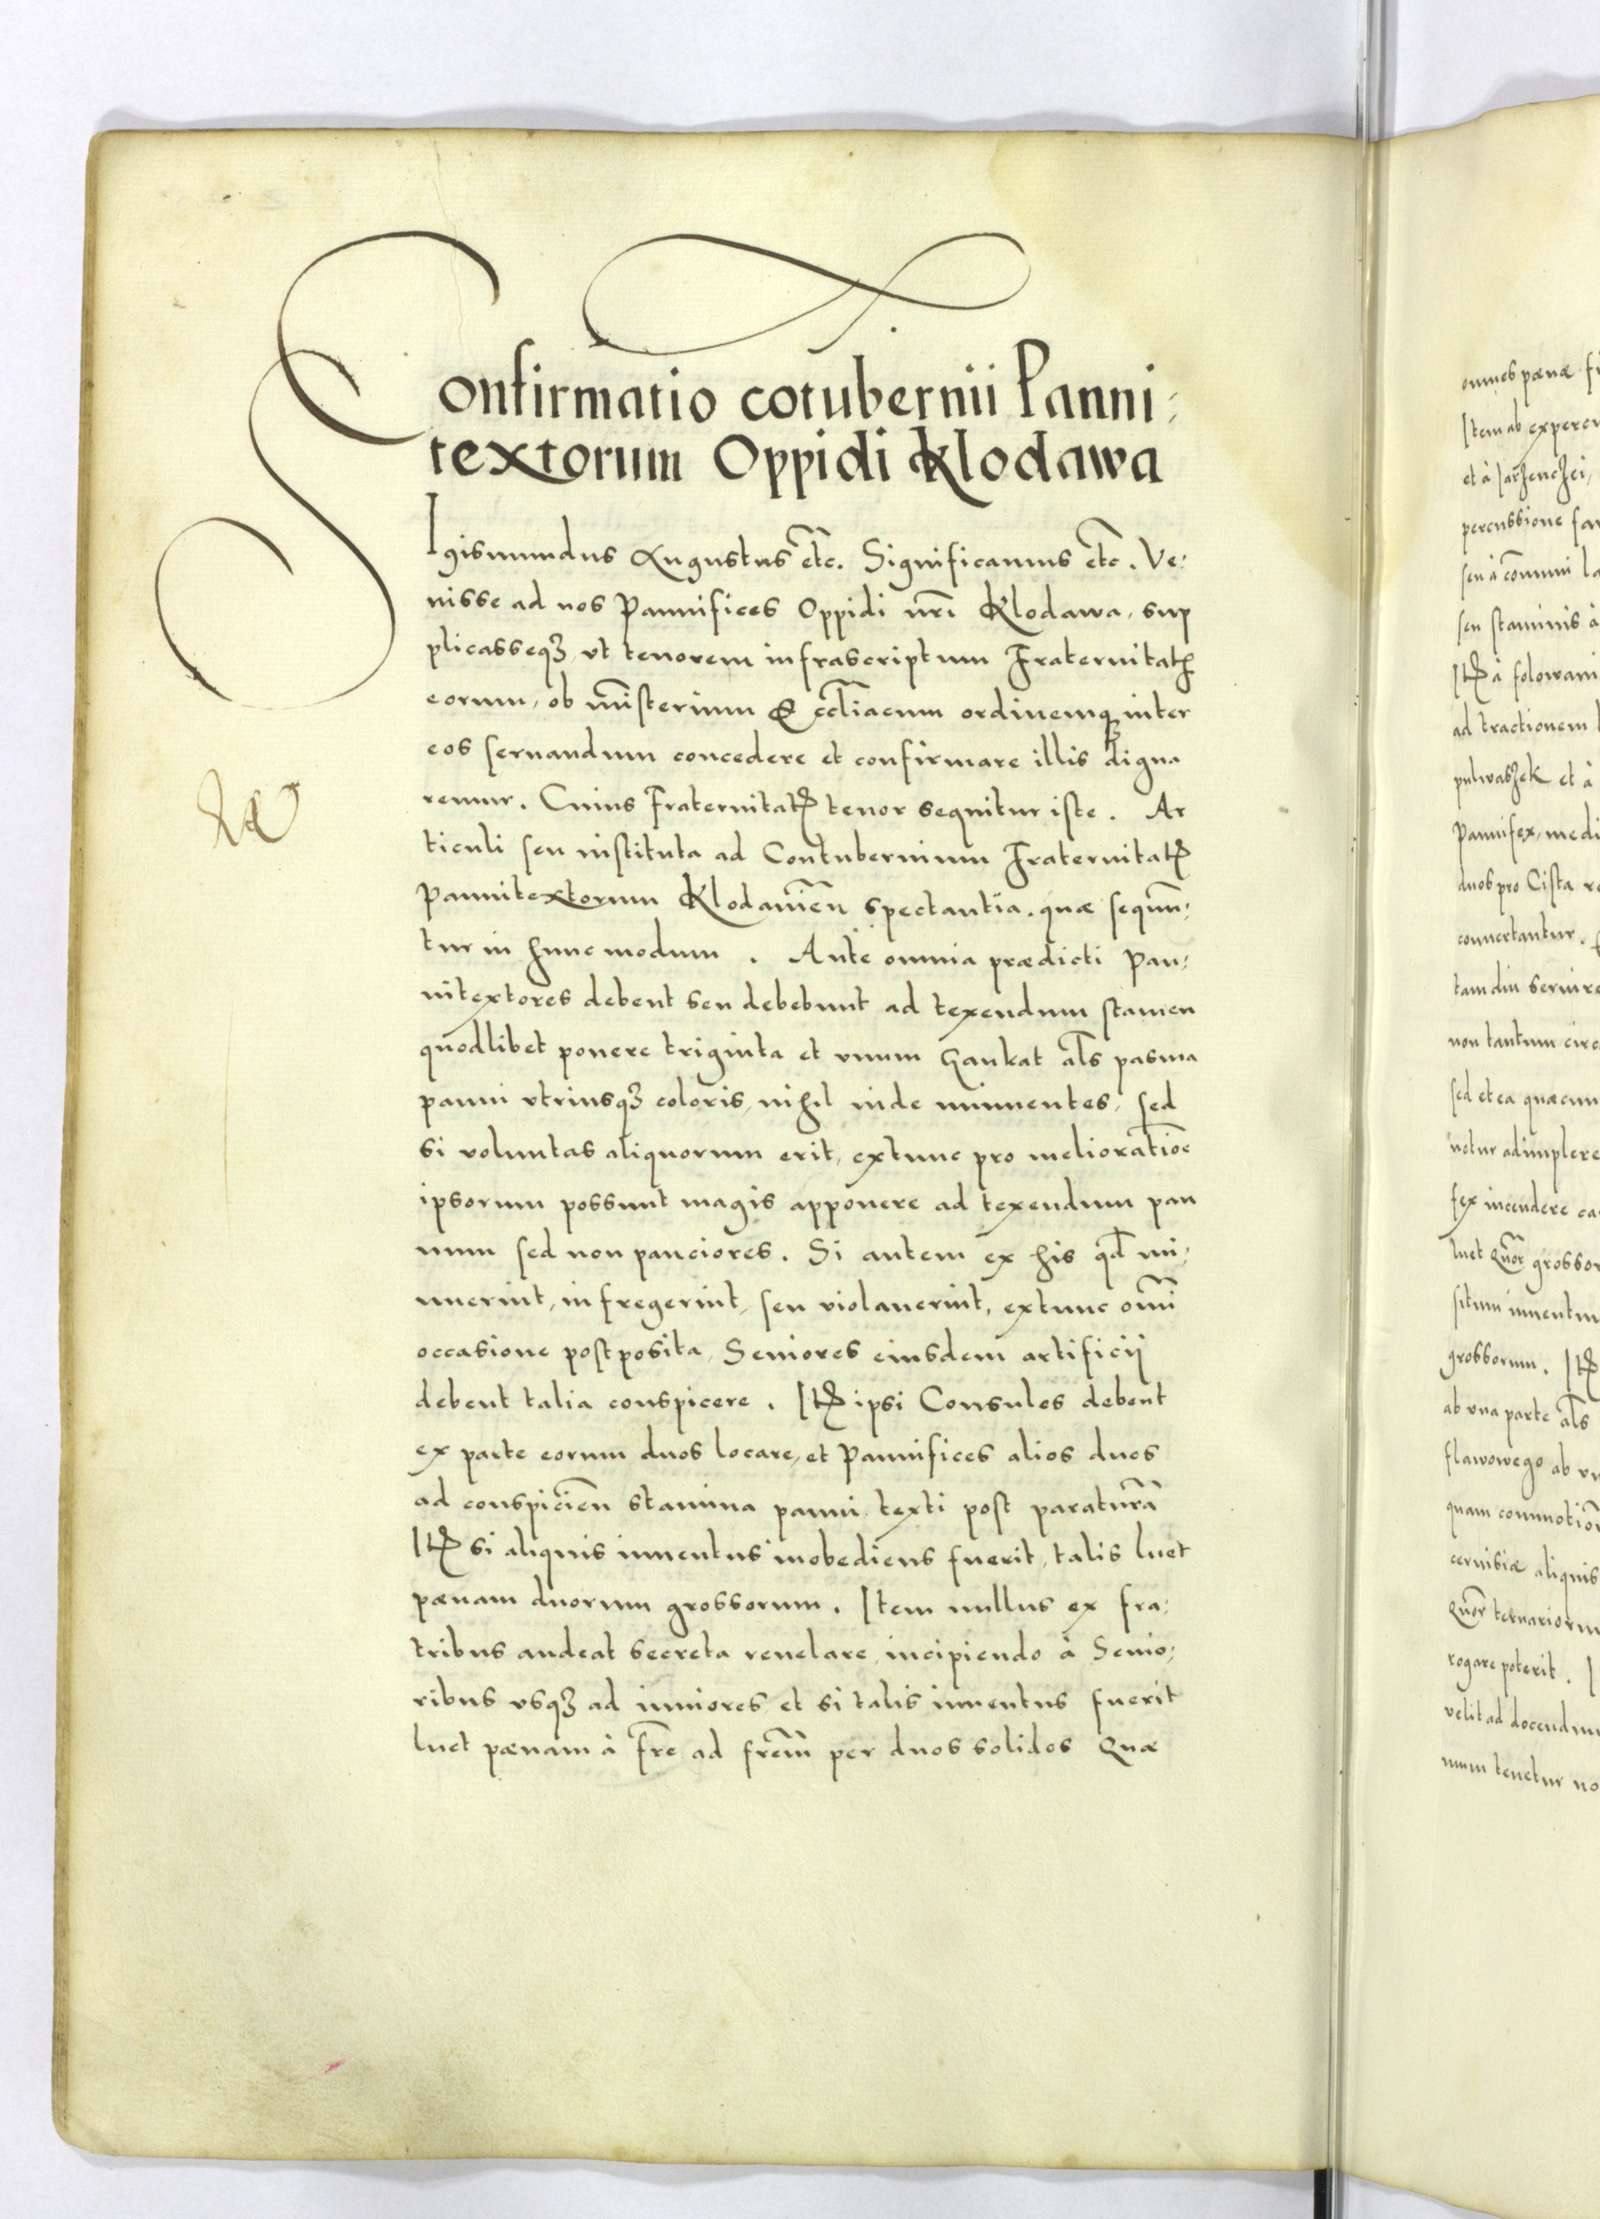 Confirmatio cotubernii Panni-
textorum Oppidi Klodawa
Sigismundus Augustus etc̄. Significamus etc̄. Ve-
nisse ad nos Pannifices Oppidi nr̄i Klodawa, sup
plicasseqȝ vt tenorem infrascriptum Fraternitatꝭ
eorum, ob mīsterium & eccl̄iacum ordinemqȝ inter
eos seruandum concedere et confirmare illis digna
remur. Cuius Fraternitatꝭ tenor sequitur iste. Ar
ticuli seu instituta ad Contubernium Fraternitatꝭ
Pannitextorum Klodauien̄ spectantia. quæ sequun-
tur in hunc modum. Ante omnia prædicti Pan-
nitextores debent seu debebunt ad texendum stamen
quodlibet ponere triginta et vnum Hankat al̄s pasma
panni vtriusqȝ coloris, nihil inde minuentes, sed
si voluntas aliquorum erit, extunc pro melioratiōe
ipsorum possunt magis apponere ad texendum pan
num sed non pauciores. Si autem ex his qd̄ mi-
nuerint, infregerint, seu violauerint, extunc om̄i
occasione postposita, Seniores eiusdem artificij
debent talia conspicere. Itꝭ ipsi Consules debent
ex parte eorum duos locare, et Pannifices alios duos
ad conspicien̄ stamina panni texti post paraturā
Itꝭ si aliquis inuentus inobediens fuerit, talis luet
pænam duorum grossorum. Item nullus ex fra-
tribus audeat secreta reuelare, incipiendo à Senio-
ribus vsqȝ ad iuniores et si talis inuentus fuerit
luet pænam à fr̄e ad frēm per duos solidos Quæ
omnes pænæ
Item ab
percussione
ad tractionem
pulwaszek et à
Pannifex, medi
duos pro Cista
conuertantur.
tam diu seruire
non tantum circ
sed et ea quæcun
netur adimplere
fex incendere
luet Quōr grossor
grossorum. Itꝭ
ab vna parte al̄s
ab vn
quam
ceruisiæ aliquis
Quōr ternariorum
rogare poterit. I
velit ad docendum
num tenetur no